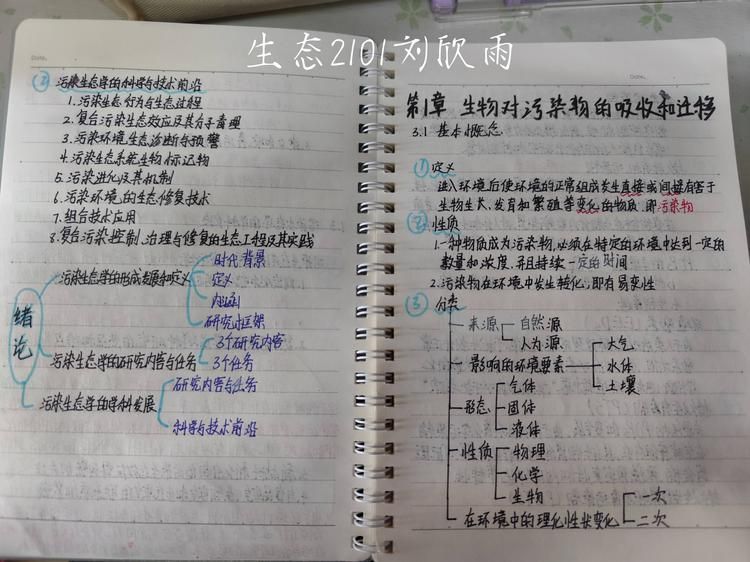 生态2101刘欣雨
Date.
② 污染生态学的科学与技术前沿
1.污染生态行为与生态过程
2.复合污染生态效应及其分子毒理
3.污染环境生态诊断与预警
4.污染生态系统生物标记物
5.污染进化及其机制
6.污染环境的生态修复技术
7.组合技术应用
8.复合污染控制、治理与修复的生态工程及其实践
绪论
污染生态学的形成发展和定义
时代背景
定义
内涵
研究框架
污染生态学的研究内容与任务
3个研究内容
3个任务
污染生态学的学科发展
研究内容与任务
科学与技术前沿
Date.
第1章 生物对污染物的吸收和迁移
3.1 基本概念
① 定义
进入环境后使环境的正常组成发生直接或间接有害于
生物生长、发育和繁殖等变化的物质,即污染物
② 性质
1.一种物质成为污染物,必须在特定的环境中达到一定的
数量和浓度,并且持续一定的时间
2.污染物在环境中发生转化,即有易变性
③ 分类
来源
自然源
人为源
影响的环境要素
大气
水体
土壤
形态
气体
固体
液体
性质
物理
化学
生物
在环境中的理化性状变化
一次
二次